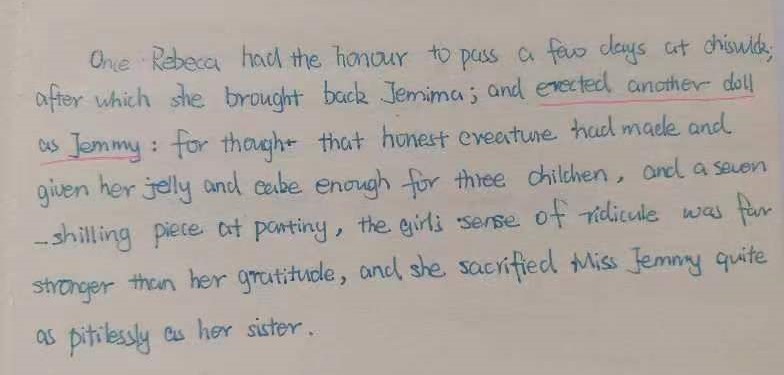 Once Rebeca had the honour to pass a few days at chiswick;
after which she brought back Jemima; and erected another doll
as Jemmy: for thought that honest creature had made and
given her jelly and cake enough for three children, and a seven
-shilling piece at parting, the girl's sense of ridicule was far
stronger than her gratitude, and she sacrified Miss Jemmy quite
as pitilessly as her sister.